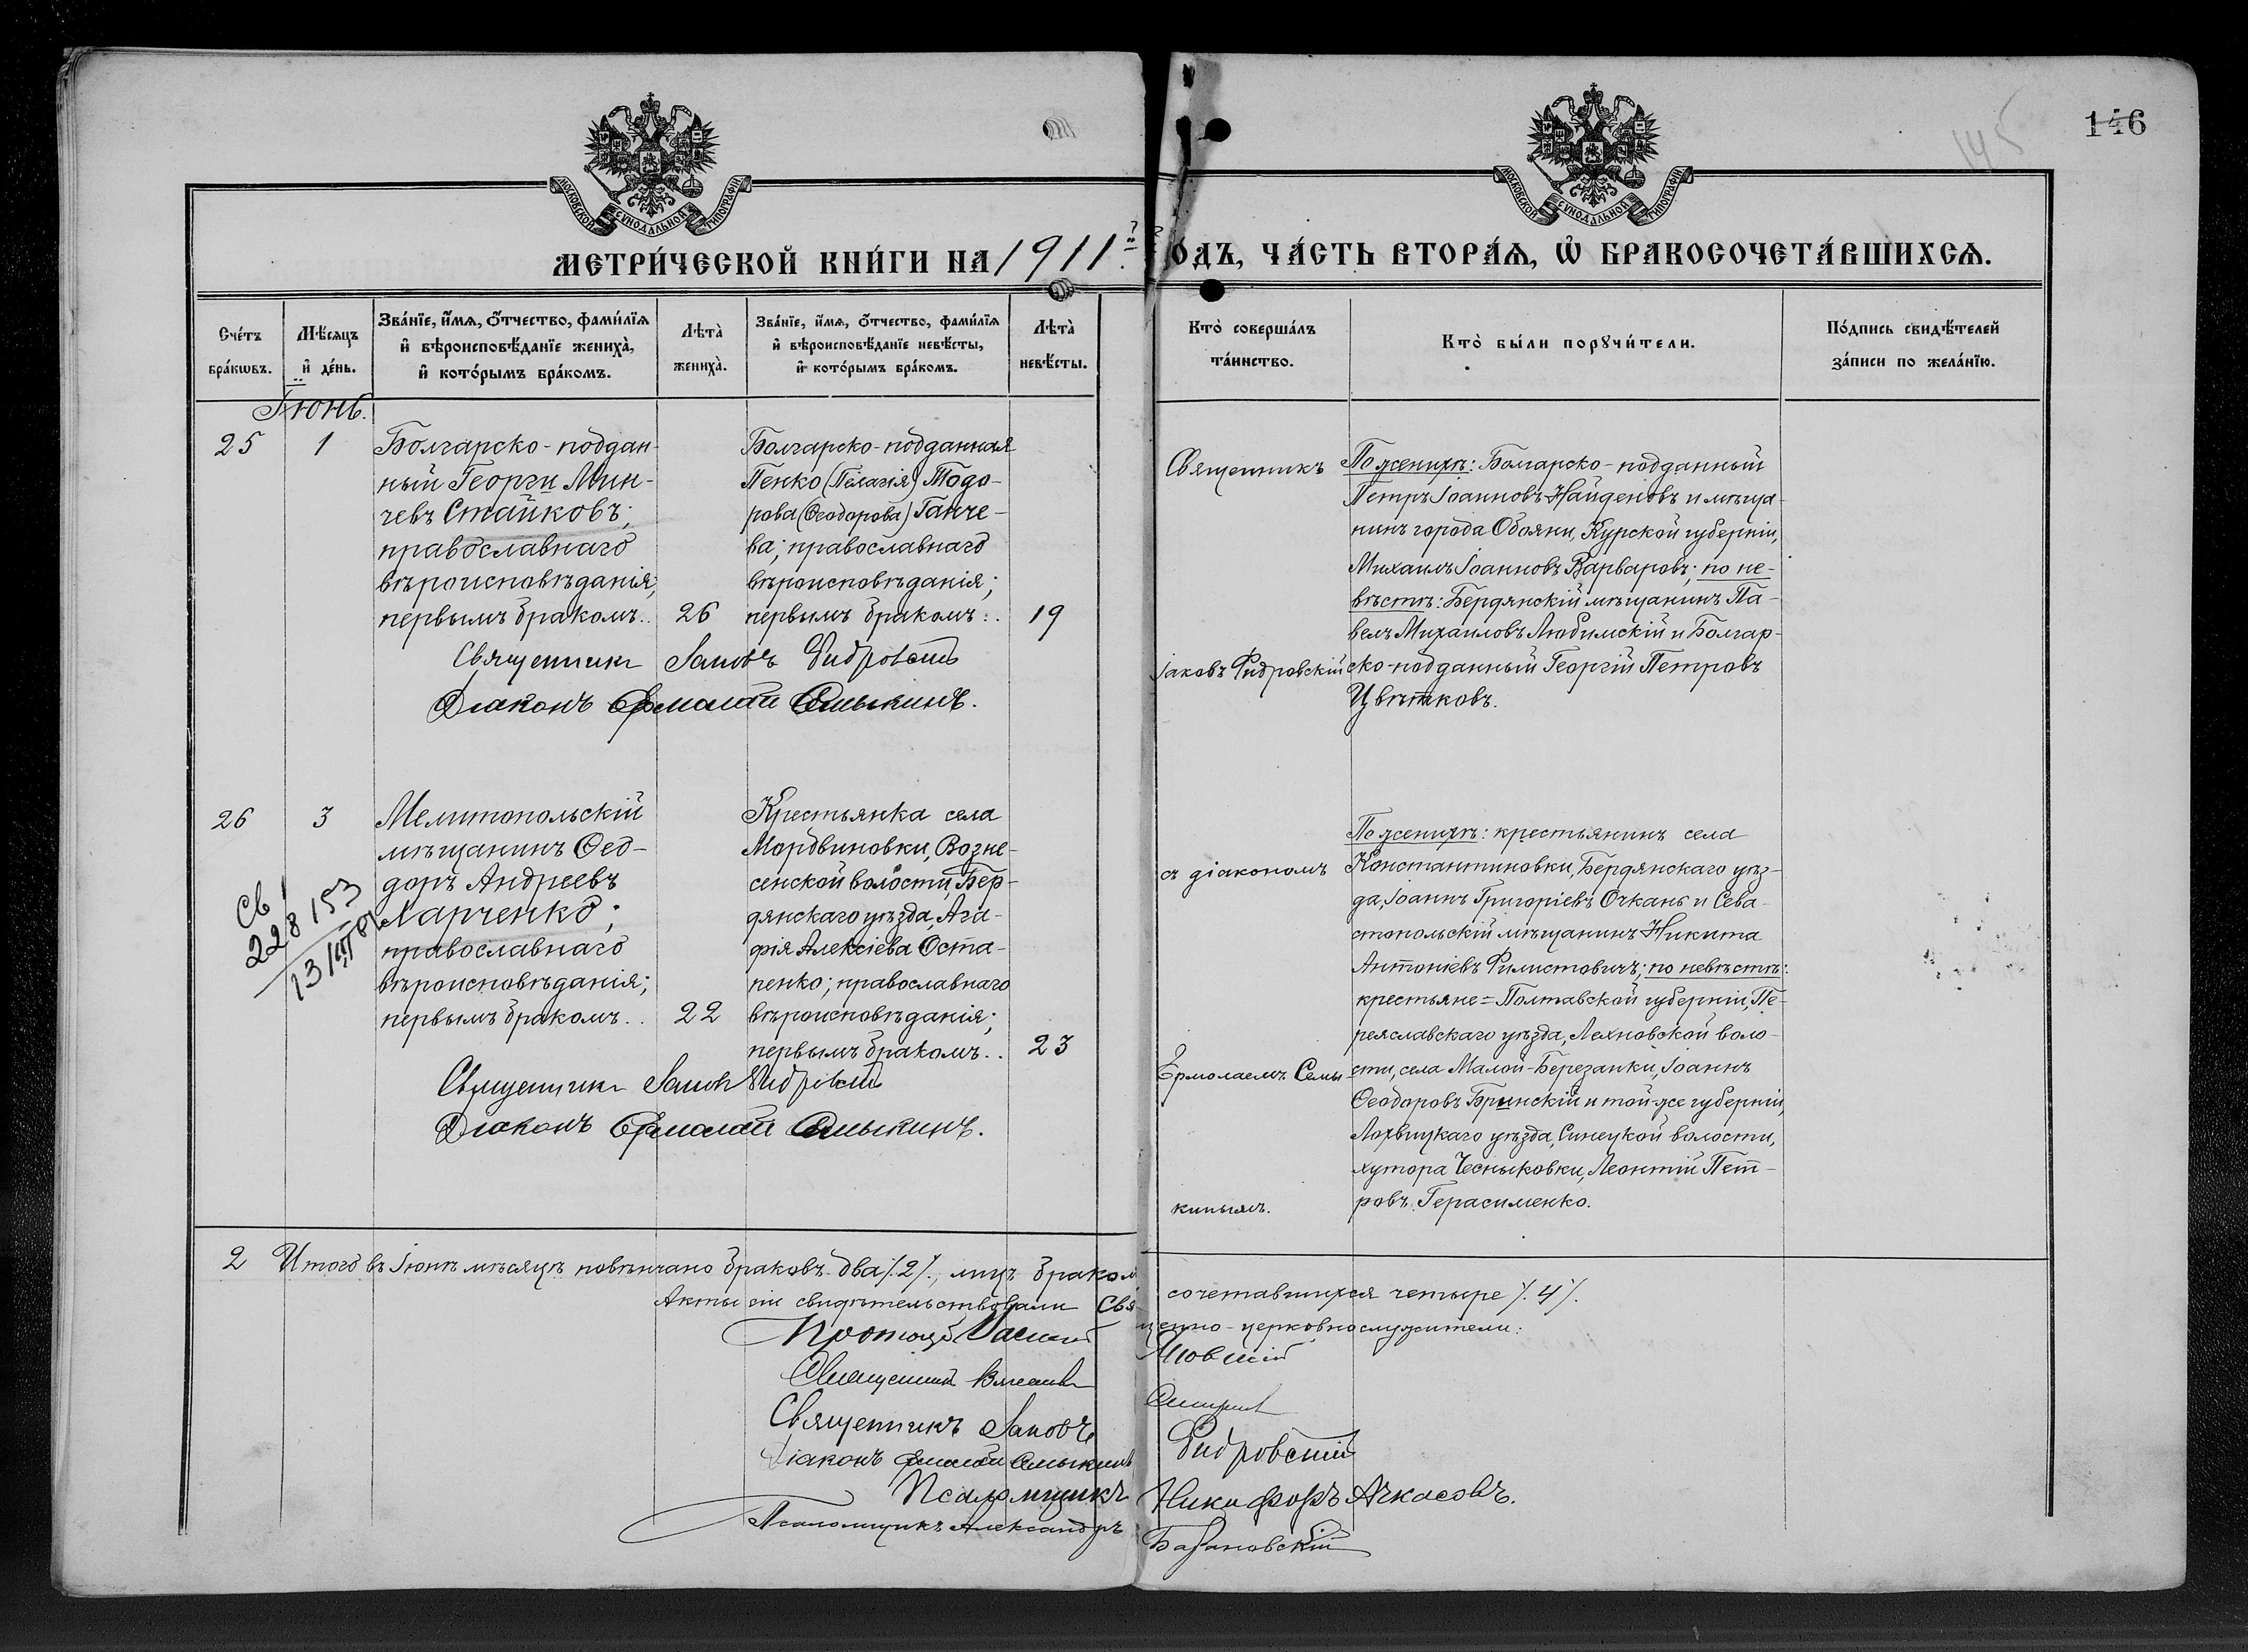 146
145
МОСКОВСКОЙ СѴНОДАЛЬНОЙ ТИПОГРАФІИ
МОСКОВСКОЙ СѴНОДАЛЬНОЙ ТИПОГРАФІИ
МЕТРИ́ЧЕСКОЙ КНИ́ГИ НА 1911 ГОДЪ, ЧА́СТЬ ВТОРА́Ѧ, Ѡ БРАКОСОЧЕТА́ВШИХСѦ.
Сче́тъ
бра́кѡвъ.
Мѣ́сяцъ
и де́нь.
Зва́нїе, и́мѧ, ѻ́тчество, фами́лїѧ
и҆ вѣроисповѣ́данїе жениха̀,
и҆ кото́рымъ бра́комъ.
Лѣта̀
жениха̀.
Зва́нїе, и́мѧ, ѻ́тчество, фами́лїѧ
и҆ вѣроисповѣ́данїе невѣ́сты,
и҆ кото́рымъ бра́комъ.
Лѣта̀
невѣ́сты.
Кто̀ соверша́лъ
та́инство.
Кто̀ бы́ли порꙋчи́тели.
По́дпись свидѣ́телей
за́писи по жела́нїю.
Іюнь.
25
1
Болгарско-поддан-
ный Георги Мин-
чевъ Стайковъ;
православнаго
вѣроисповѣданія;
первымъ бракомъ..
26
Болгарско-подданная
Пенко (Пелагія) Тодо-
рова (Ѳеодорова) Ганче-
ва; православнаго
вѣроисповѣданія;
первымъ бракомъ:.
19
Священникъ Іаковъ Фидровскій
Діаконъ Ермолай Семыкинъ.
Священникъ
Іаковъ Фидровскій
По женихѣ: Болгарско-подданный
Петръ Іоанновъ Найденовъ и мѣща-
нинъ города Обояни, Курской губерніи,
Михаилъ Іоанновъ Варваровъ; по не-
вѣстѣ: Бердянскій мѣщанинъ Па-
велъ Михаиловъ Любимскій и Болгар-
ско-подданный Георгій Петровъ
Цвѣтковъ.
26
3
Св
228153
13/III
Мелитопольскій
мѣщанинъ Ѳео-
доръ Андреевъ
Харченко;
православнаго
вѣроисповѣданія;
первымъ бракомъ..
22
Крестьянка села
Мордвиновки, Возне-
сенской волости, Бер-
дянскаго уѣзда, Ага-
фія Алексіева Оста-
пенко; православнаго
вѣроисповѣданія;
первымъ бракомъ..
23
Священникъ Іаковъ Фидровскій
Діаконъ Ермолай Семыкинъ.
съ діакономъ
Ермолаемъ Семы-
кинымъ.
По женихѣ: крестьянинъ села
Константиновки, Бердянскаго уѣз-
да, Іоаннъ Григоріевъ Очкань и Сева-
стопольскій мѣщанинъ Никита
Антоніевъ Филистовичъ; по невѣстѣ:
крестьяне = Полтавской губерніи, Пе-
реяславскаго уѣзда, Лехновской воло-
сти, села Малой-Березанки, Іоаннъ
Ѳеодоровъ Бринскій и той-же губерніи,
Лохвицкаго уѣзда, Синецкой волости,
хутора Чесныковки, Леонтій Пет-
ровъ Герасименко.
2 Итого въ Іюнѣ мѣсяцѣ повѣнчано браковъ два /.2/., лицъ браком сочетавшихся четыре /.4/.
Акты сіи свидѣтельствовали Священно-церковнослужители:
Священникъ
Священникъ Іаковъ Фидровскій
Діаконъ Ермолай Семыкинъ
Псаломщикъ Никифоръ Ачкасовъ.
Псаломщикъ Александръ Барановскій